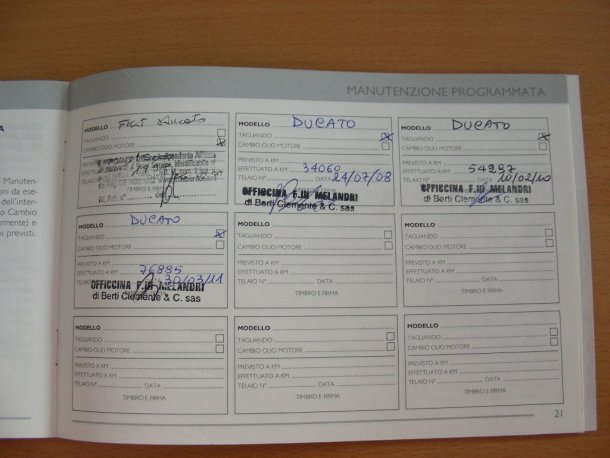 MANUTENZIONE PROGRAMMATA
Manuten-
ni da ese-
dell'inter-
o Cambio
rmente) e
i previsti.
MODELLO Fiat Ducato
TAGLIANDO
CAMBIO OLIO MOTORE
PREVISTO A KM
TIMBRO E FIRMA
MODELLO DUCATO
TAGLIANDO
CAMBIO OLIO MOTORE
PREVISTO A KM
EFFETTUATO A KM 34060
TELAIO N° DATA 24/07/08
OFFICCINA F.lli MELANDRI
di Berti Clemente & C. sas
MODELLO DUCATO
TAGLIANDO
CAMBIO OLIO MOTORE
PREVISTO A KM
EFFETTUATO A KM 54997
TELAIO N° 10/02/10
OFFICCINA F.lli MELANDRI
di Berti Clemente & C. sas
MODELLO DUCATO
TAGLIANDO
CAMBIO OLIO MOTORE
PREVISTO A KM
EFFETTUATO A KM 76885
TELAIO N° 30/03/11
OFFICCINA F.lli MELANDRI
di Berti Clemente & C. sas
MODELLO
TAGLIANDO
CAMBIO OLIO MOTORE
PREVISTO A KM
EFFETTUATO A KM
TELAIO N° DATA
TIMBRO E FIRMA
MODELLO
TAGLIANDO
CAMBIO OLIO MOTORE
PREVISTO A KM
EFFETTUATO A KM
TELAIO N° DATA
TIMBRO E FIRMA
MODELLO
TAGLIANDO
CAMBIO OLIO MOTORE
PREVISTO A KM
EFFETTUATO A KM
TELAIO N° DATA
TIMBRO E FIRMA
MODELLO
TAGLIANDO
CAMBIO OLIO MOTORE
PREVISTO A KM
EFFETTUATO A KM
TELAIO N° DATA
TIMBRO E FIRMA
MODELLO
TAGLIANDO
CAMBIO OLIO MOTORE
PREVISTO A KM
EFFETTUATO A KM
TELAIO N° DATA
TIMBRO E FIRMA
21